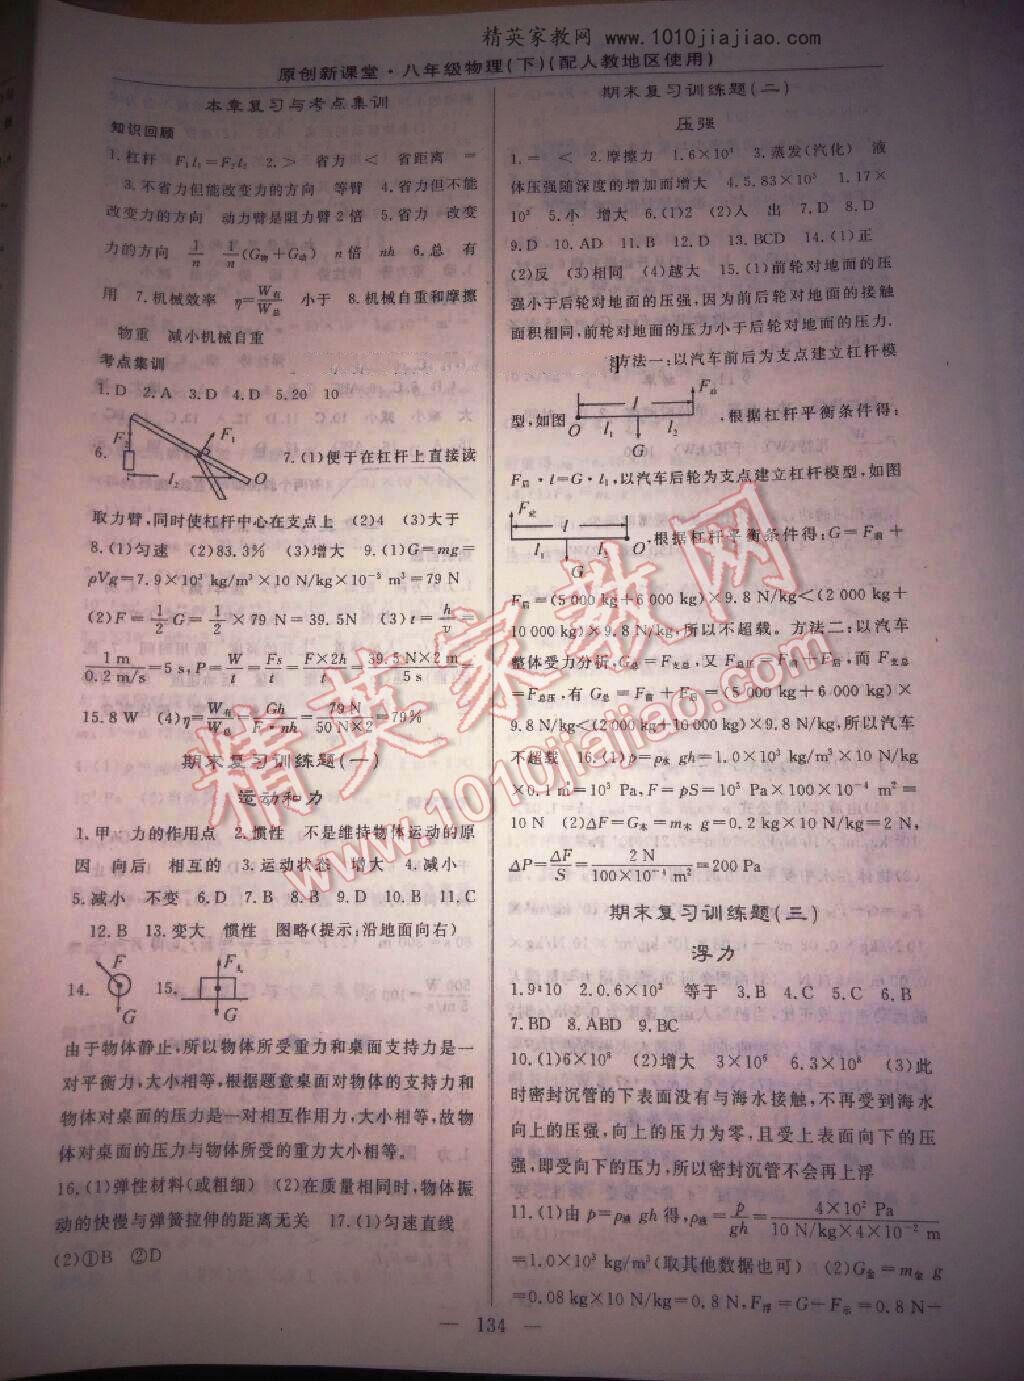 精英家教网 www.1010jiajiao.com
原创新课堂·八年级物理(下)(配人教地区使用)
本章复习与考点集训
知识回顾
1.杠杆 F₁l₁=F₂l₂ 2.> 省力 < 省距离 =
3.不省力但能改变力的方向 等臂 4.省力但不能
改变力的方向 动力臂是阻力臂2倍 5.省力 改变
力的方向 1/n 1/n(G物+G动) n倍 nh 6.总 有
用 7.机械效率 η=W有/W总 小于 8.机械自重和摩擦
物重 减小机械自重
考点集训
1.D 2.A 3.D 4.D 5.20 10
6. F₂ F₁ l₂ O 7.(1)便于在杠杆上直接读
取力臂,同时使杠杆中心在支点上 (2)4 (3)大于
8.(1)匀速 (2)83.3% (3)增大 9.(1)G=mg=
ρVg=7.9×10³ kg/m³×10 N/kg×10⁻³ m³=79 N
(2)F=1/2G=1/2×79 N=39.5N (3)t=h/v=
1 m/0.2 m/s=5 s,P=W/t=Fs/t=F×2h/t=39.5 N×2 m/5 s=
15.8 W (4)η=W有/W总=Gh/F·nh=79 N/50 N×2=79%
期末复习训练题(一)
运动和力
1.甲 力的作用点 2.惯性 不是维持物体运动的原
因 向后 相互的 3.运动状态 增大 4.减小
5.减小 不变 6.D 7.B 8.B 9.D 10.B 11.C
12.B 13.变大 惯性 图略(提示:沿地面向右)
14. F G 15. F支 G
由于物体静止,所以物体所受重力和桌面支持力是一
对平衡力,大小相等,根据题意桌面对物体的支持力和
物体对桌面的压力是一对相互作用力,大小相等,故物
体对桌面的压力与物体所受的重力大小相等。
16.(1)弹性材料(或粗细) (2)在质量相同时,物体振
动的快慢与弹簧拉伸的距离无关 17.(1)匀速直线
(2)①B ②D
期末复习训练题(二)
压强
1.= < 2.摩擦力 1.6×10⁴ 3.蒸发(汽化) 液
体压强随深度的增加而增大 4.5.83×10³ 1.17×
10³ 5.小 增大 6.(1)2 (2)入 出 7.D 8.D
9.D 10.AD 11.B 12.D 13.BCD 14.(1)正
(2)反 (3)相同 (4)越大 15.(1)前轮对地面的压
强小于后轮对地面的压强,因为前后轮对地面的接触
面积相同,前轮对地面的压力小于后轮对地面的压力.
方法一:以汽车前后为支点建立杠杆模
型,如图 O l l₁ l₂ G F ,根据杠杆平衡条件得:
F后·l=G·l₁,以汽车后轮为支点建立杠杆模型,如图
F l l₁ l₂ O G .根据杠杆平衡条件得:G=F前+
F后=(5 000 kg+6 000 kg)×9.8 N/kg<(2 000 kg+
10 000 kg)×9.8 N/kg,所以不超载. 方法二:以汽车
整体受力分析,G总=F支总,又 F总压=F前+F后,而 F支总
=F总压,有 G总=F前+F后=(5 000 kg+6 000 kg)×
9.8 N/kg<(2 000 kg+10 000 kg)×9.8 N/kg,所以汽车
不超载 16.(1)p=ρ水 gh=1.0×10³ kg/m³×10 N/kg
×0.1 m=10³ Pa,F=pS=10³ Pa×100×10⁻⁴ m²=
10 N (2)ΔF=G水=m水 g=0.2 kg×10 N/kg=2 N,
ΔP=ΔF/S=2 N/100×10⁻⁴ m²=200 Pa
期末复习训练题(三)
浮力
1.9∶10 2.0.6×10³ 等于 3.B 4.C 5.C 6.B
7.BD 8.ABD 9.BC
10.(1)6×10⁸ (2)增大 3×10⁵ 6.3×10⁸ (3)此
时密封沉管的下表面没有与海水接触,不再受到海水
向上的压强,向上的压力为零,且受上表面向下的压
强,即受向下的压力,所以密封沉管不会再上浮
11.(1)由 p=ρ液 gh 得,ρ液=p/gh=4×10² Pa/10 N/kg×4×10⁻² m
=1.0×10³ kg/m³(取其他数据也可) (2)G金=m金 g
=0.08 kg×10 N/kg=0.8 N,F浮=G-F示=0.8 N-
— 134 —
精英家教网
www.1010jiajiao.com